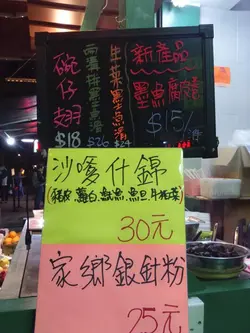 新產品
墨魚腐燴
$15/件
生菜墨魚滑
$24
墨魚滑
$26
碗仔翅
$18
沙嗲什錦
(豬皮、蘿白、魷魚、魚旦、牛柏葉)
30元
家鄉銀針粉
25元